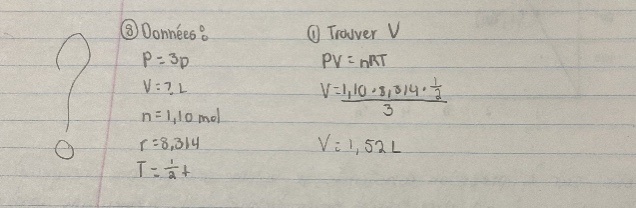 ?
⑧ Données:
P = 3p
V = ? L
n = 1,10 mol
r = 8,314
T = 1/2 t
① Trouver V
PV = nRT
V = 1,10 · 8,314 · 1/2
3
V = 1,52 L